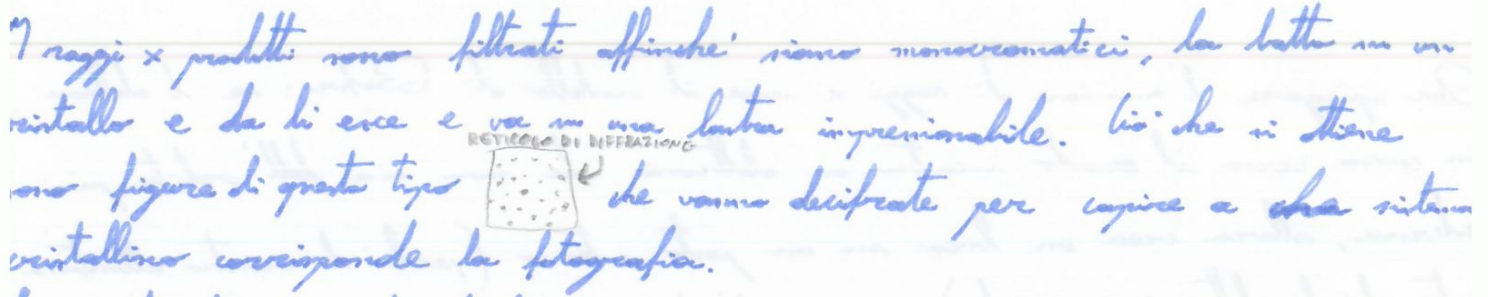 I raggi x prodotti sono filtrati affinche' siano monocromatici, la batto su un
cristallo e da li esce e va su una lastra impressionabile. Ciò che si ottiene
RETICOLO DI DIFFRAZIONE
sono figure di questo tipo che vanno decifrate per capire a che sistema
cristallino corrisponde la fotografia.